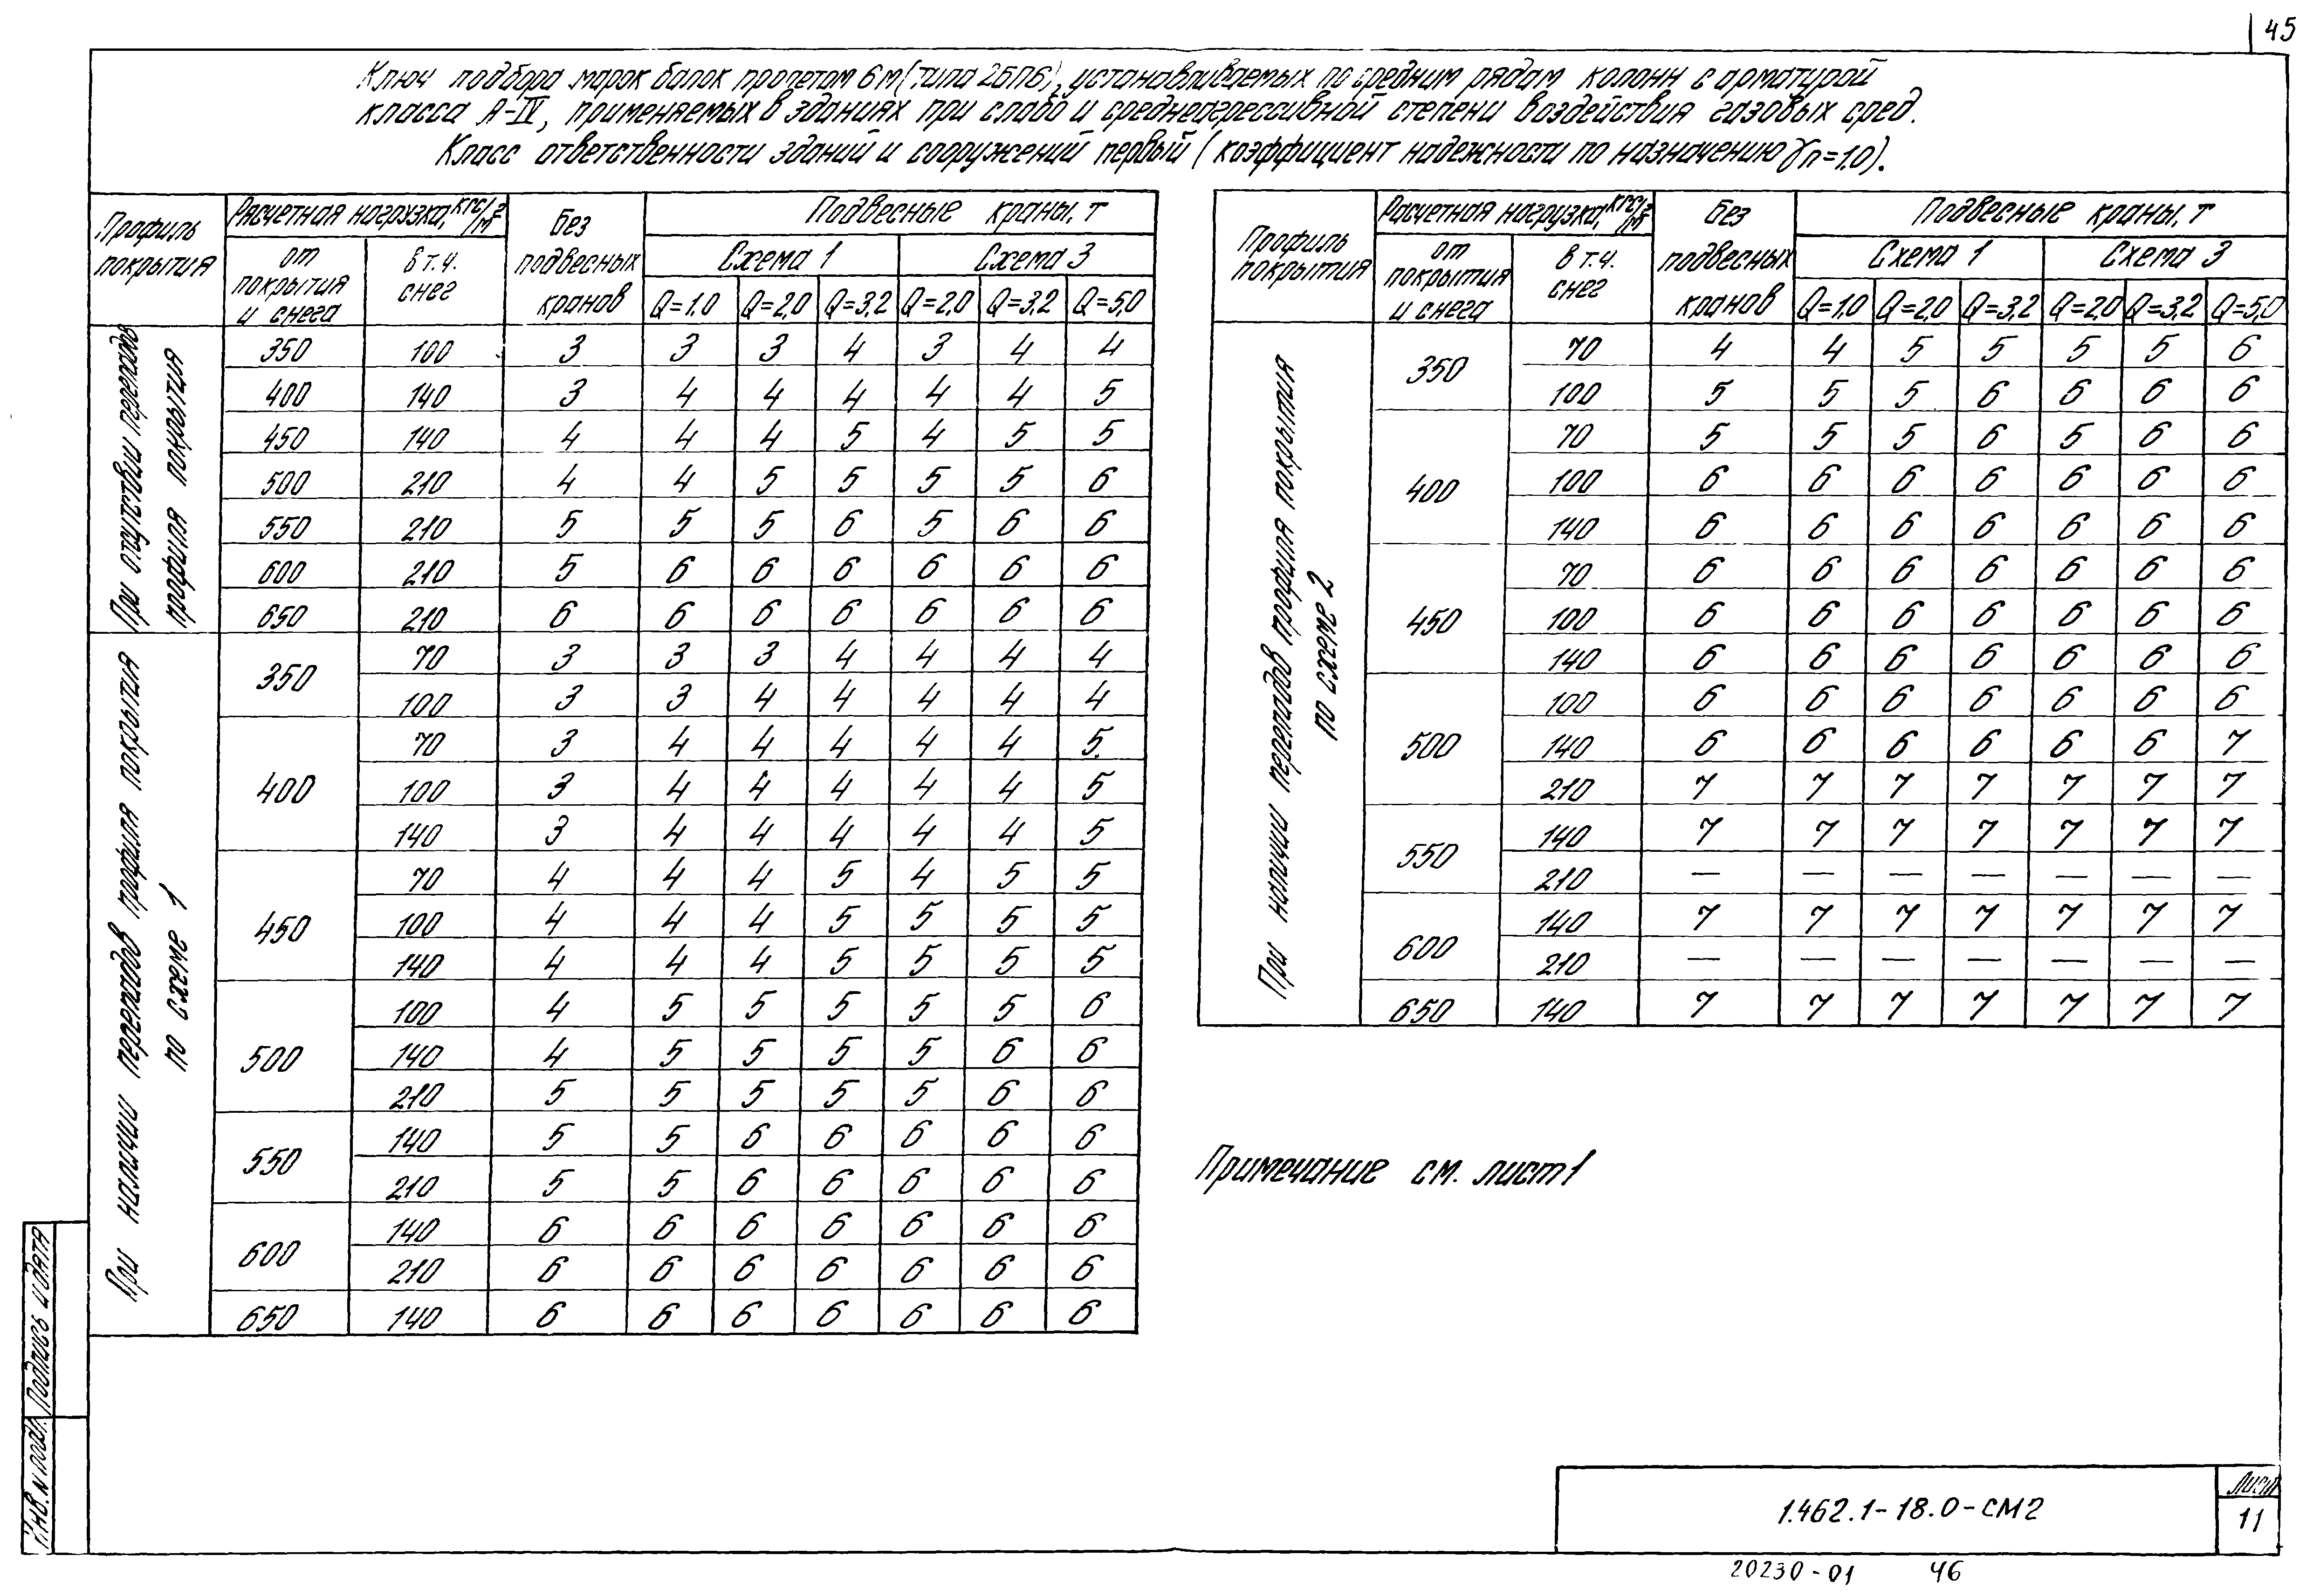 45
Ключ подбора марок балок пролетом 6м (типа 2БП6), устанавливаемых по средним рядам колонн с арматурой
класса А-IV, применяемых в зданиях при слабо и среднеагрессивной степени воздействия газовых сред.
Класс ответственности зданий и сооружений первый (коэффициент надежности по назначению γп=1.0).
Профиль покрытия | Расчетная нагрузка, кгс/м² | Без подвесных кранов | Подвесные краны, т
от покрытия и снега | в т.ч. снег | Схема 1 | Схема 3
Q=1,0 | Q=2,0 | Q=3,2 | Q=2,0 | Q=3,2 | Q=5,0
При отсутствии перепадов профиля покрытия
350 100 3 3 3 4 3 4 4
400 140 3 4 4 4 4 4 5
450 140 4 4 4 5 4 5 5
500 210 4 4 5 5 5 5 6
550 210 5 5 5 6 5 6 6
600 210 5 6 6 6 6 6 6
650 210 6 6 6 6 6 6 6
При наличии перепадов профиля покрытия
по схеме 1
350 70 3 3 3 4 4 4 4
100 3 3 4 4 4 4 4
400 70 3 4 4 4 4 4 5
100 3 4 4 4 4 4 5
140 3 4 4 4 4 4 5
450 70 4 4 4 5 4 5 5
100 4 4 4 5 5 5 5
140 4 4 4 5 5 5 5
500 100 4 5 5 5 5 5 6
140 4 5 5 5 5 6 6
210 5 5 5 5 5 6 6
550 140 5 5 6 6 6 6 6
210 5 5 6 6 6 6 6
600 140 6 6 6 6 6 6 6
210 6 6 6 6 6 6 6
650 140 6 6 6 6 6 6 6
Профиль покрытия | Расчетная нагрузка, кгс/м² | Без подвесных кранов | Подвесные краны, т
от покрытия и снега | в т.ч. снег | Схема 1 | Схема 3
Q=1,0 | Q=2,0 | Q=3,2 | Q=2,0 | Q=3,2 | Q=5,0
При наличии перепадов профиля покрытия
по схеме 2
350 70 4 4 5 5 5 5 6
100 5 5 5 6 6 6 6
400 70 5 5 5 6 5 6 6
100 6 6 6 6 6 6 6
140 6 6 6 6 6 6 6
450 70 6 6 6 6 6 6 6
100 6 6 6 6 6 6 6
140 6 6 6 6 6 6 6
500 100 6 6 6 6 6 6 6
140 6 6 6 6 6 6 7
210 7 7 7 7 7 7 7
550 140 7 7 7 7 7 7 7
210 — — — — — — —
600 140 7 7 7 7 7 7 7
210 — — — — — — —
650 140 7 7 7 7 7 7 7
Примечание см. лист 1
Инв. N подл. Подпись и дата
1.462.1-18.0-СМ2
Лист
11
20230-01 46